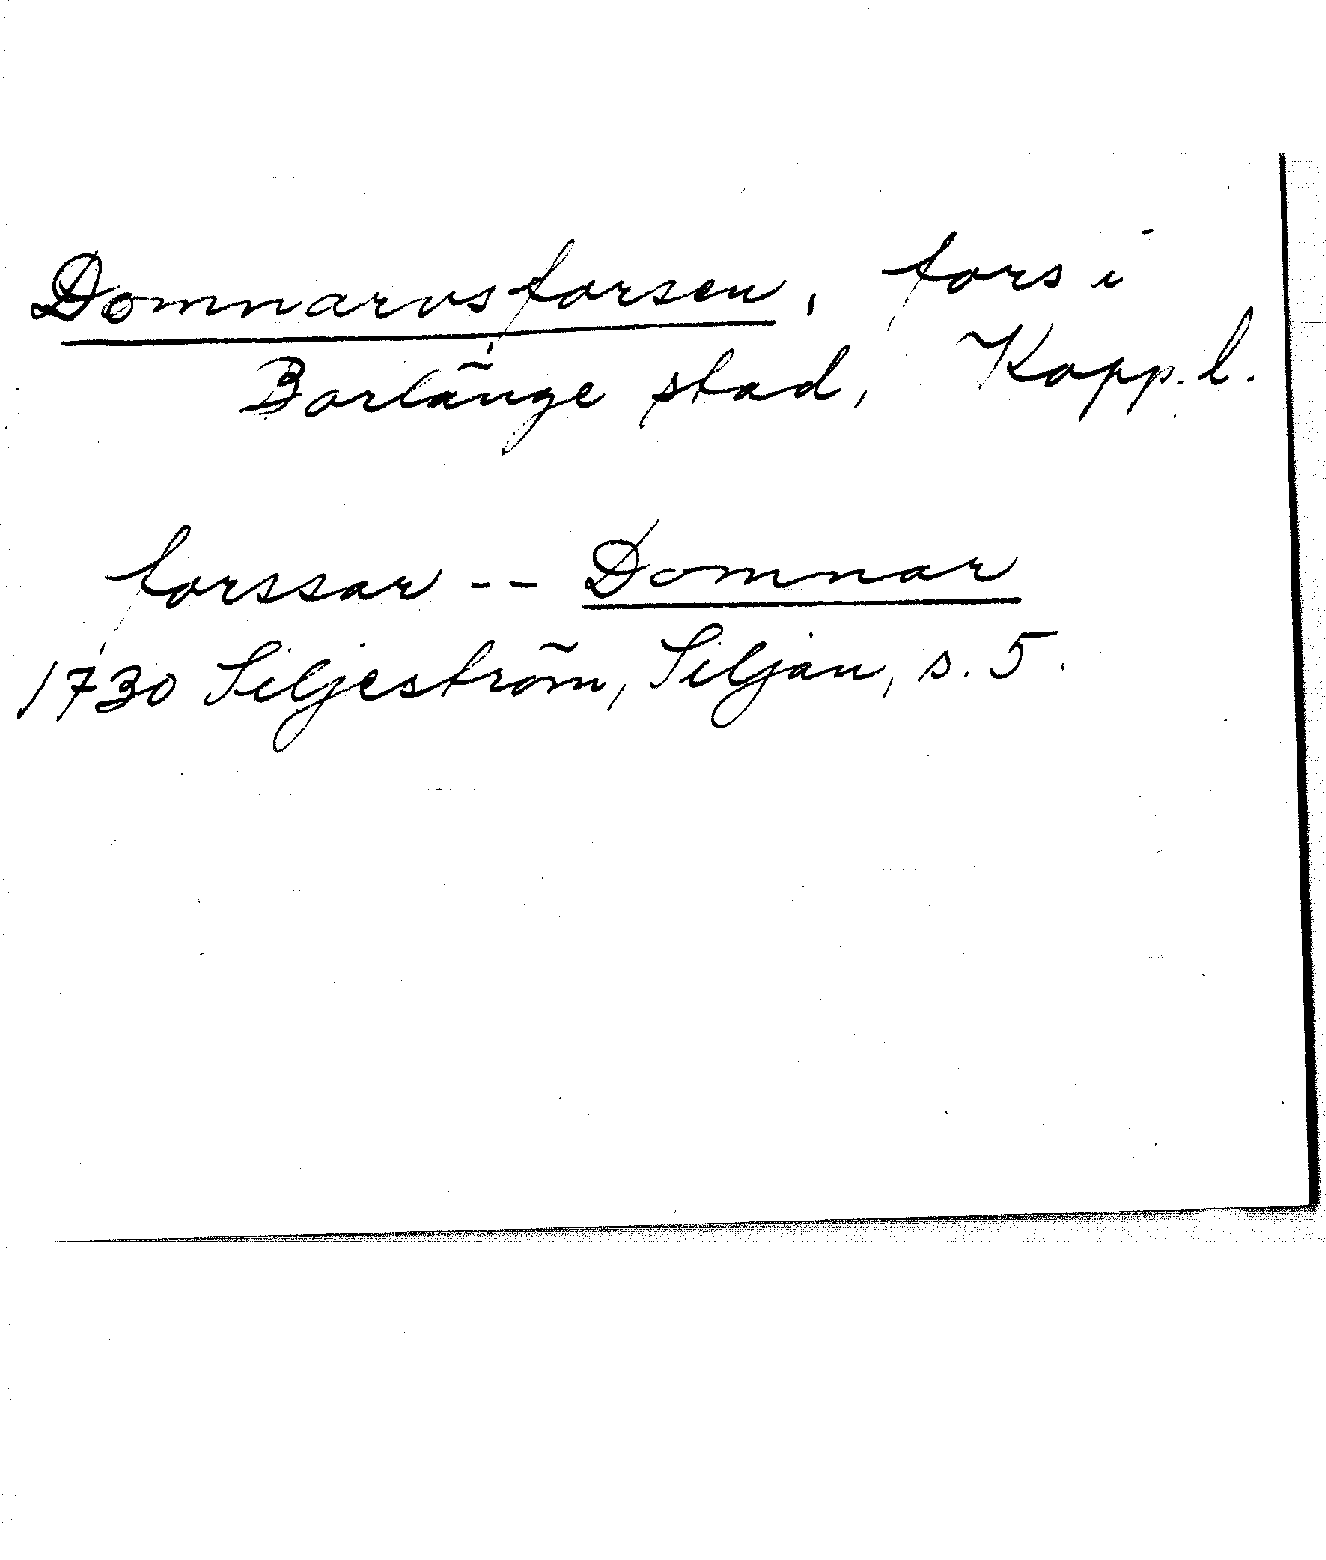 Domnarvsforsen, fors i
Borlänge stad, Kopp. l.
forssar -- Domnar
1730 Siljeström, Siljan, s. 5.